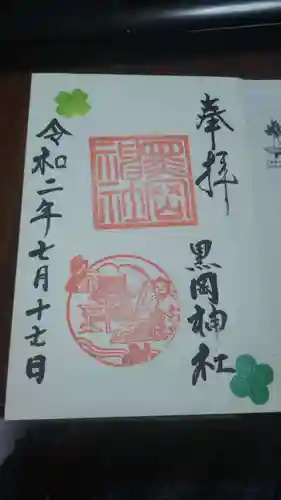 奉拝
黒岡神社
令和二年七月十七日
黒岡神社